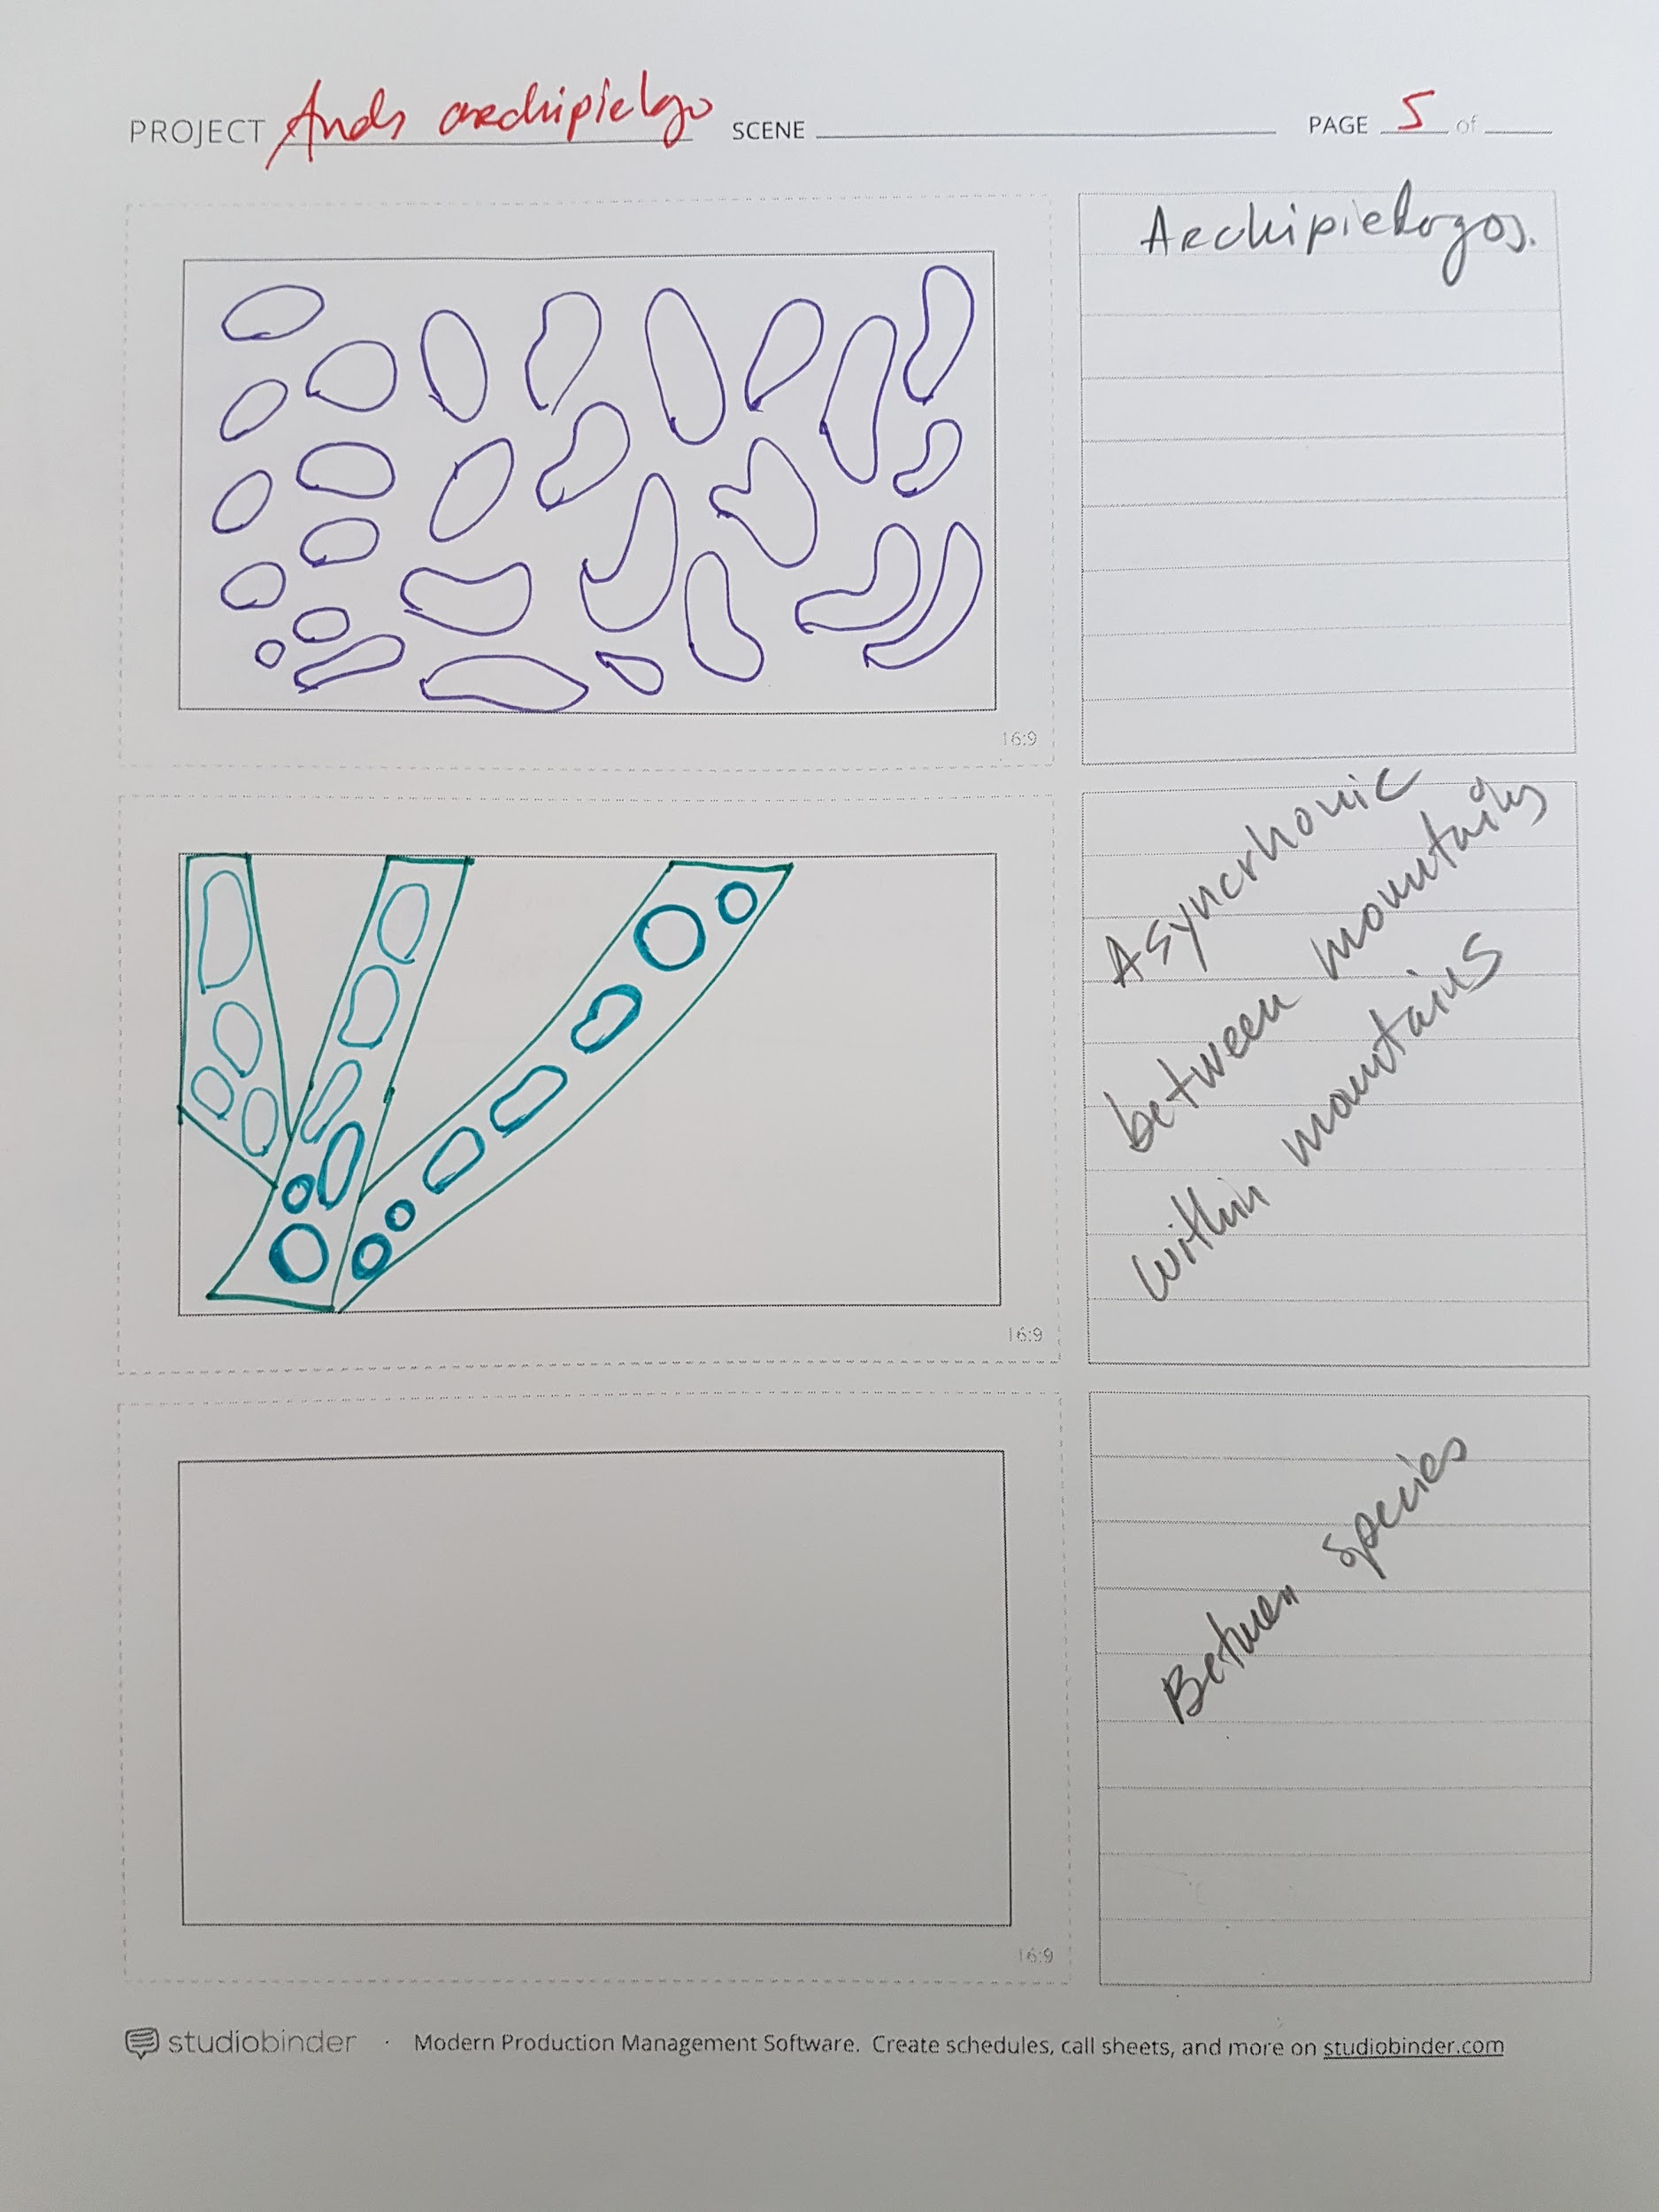 PROJECT Ands archipielgo SCENE PAGE 5 of
Archipielagos.
16:9
Asyncrhonic
between mountains
within mountains
16:9
Between species
16:9
studiobinder · Modern Production Management Software. Create schedules, call sheets, and more on studiobinder.com